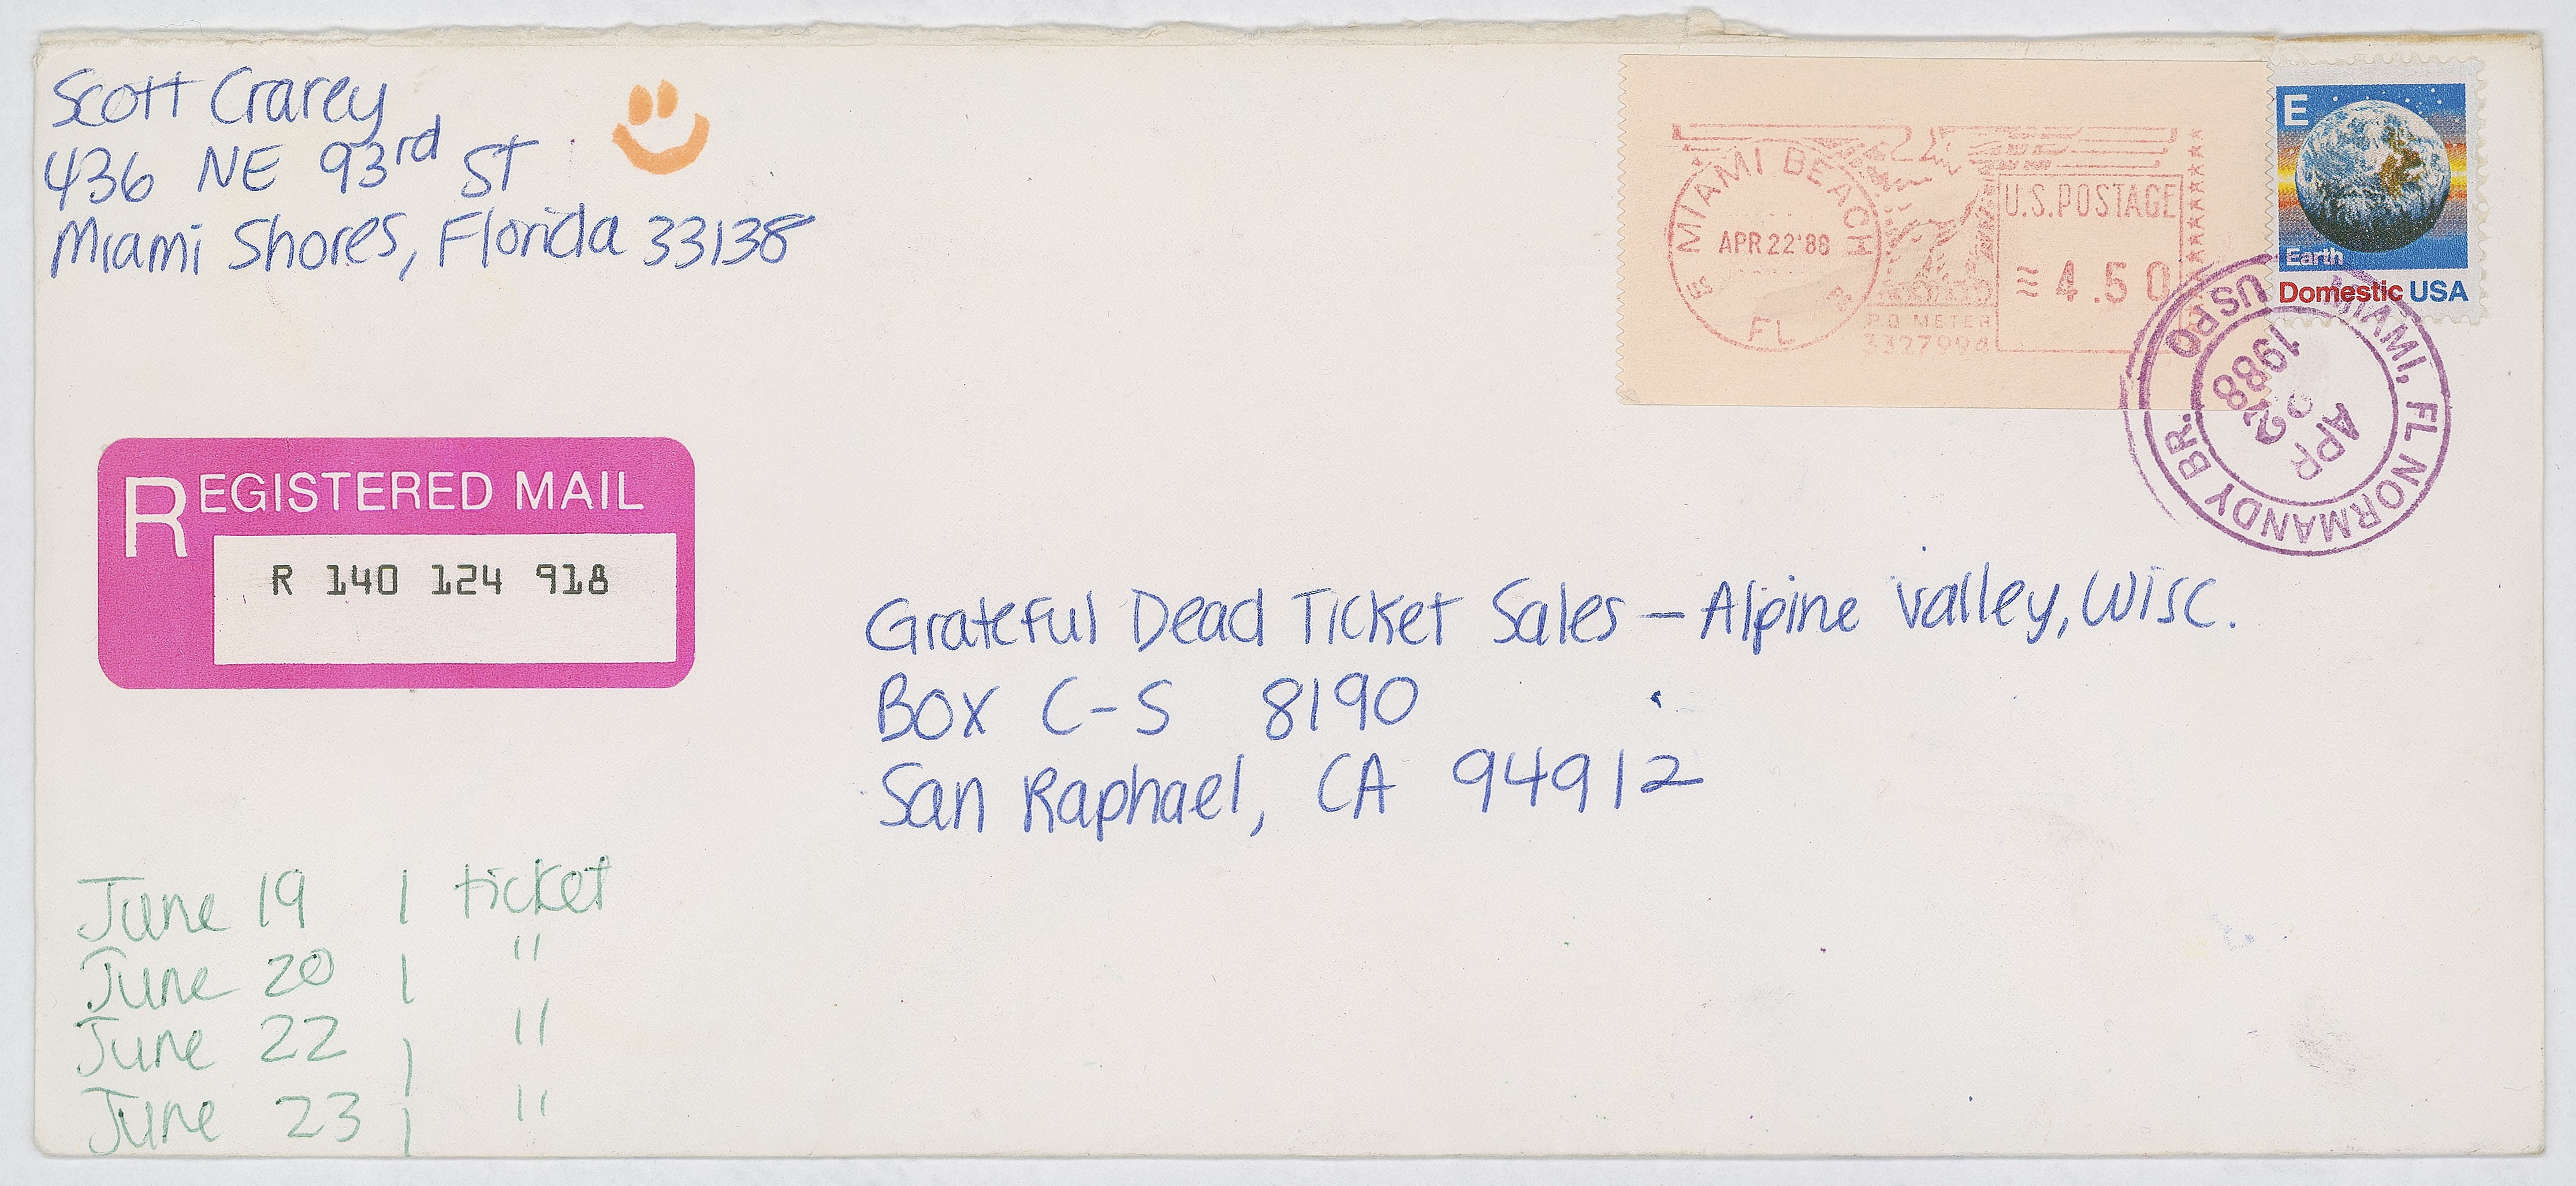 Scott Crarey
436 NE 93rd St
Miami Shores, Florida 33138
MIAMI BEACH
APR 22'88
FL
P.O. METER
3327994
U.S. POSTAGE
4.50
E
Earth
Domestic USA
MIAMI, FL NORMANDY BR.
USPO
APR 22 1988
REGISTERED MAIL
R 140 124 918
Grateful Dead Ticket Sales - Alpine Valley, Wisc.
Box C-S 8190
San Raphael, CA 94912
June 19 1 ticket
June 20 1 "
June 22 1 "
June 23 1 "